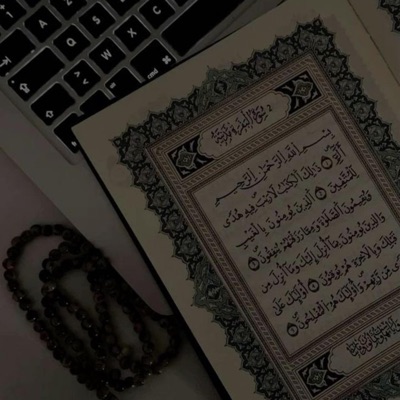 Q
A
S
Z
X
٢ سورة البقرة
بِسْمِ اللَّهِ الرَّحْمَٰنِ الرَّحِيمِ
الٓمٓ ١ ذَٰلِكَ الْكِتَٰبُ لَا رَيْبَ فِيهِ هُدًى
لِّلْمُتَّقِينَ ٢ الَّذِينَ يُؤْمِنُونَ بِالْغَيْبِ
وَيُقِيمُونَ الصَّلَوٰةَ وَمِمَّا رَزَقْنَٰهُمْ يُنفِقُونَ ٣
وَالَّذِينَ يُؤْمِنُونَ بِمَا أُنزِلَ إِلَيْكَ وَمَا أُنزِلَ مِن
قَبْلِكَ وَبِالْآخِرَةِ هُمْ يُوقِنُونَ ٤ أُولَٰئِكَ عَلَىٰ
هُدًى مِّن رَّبِّهِمْ وَأُولَٰئِكَ هُمُ الْمُفْلِحُونَ ٥